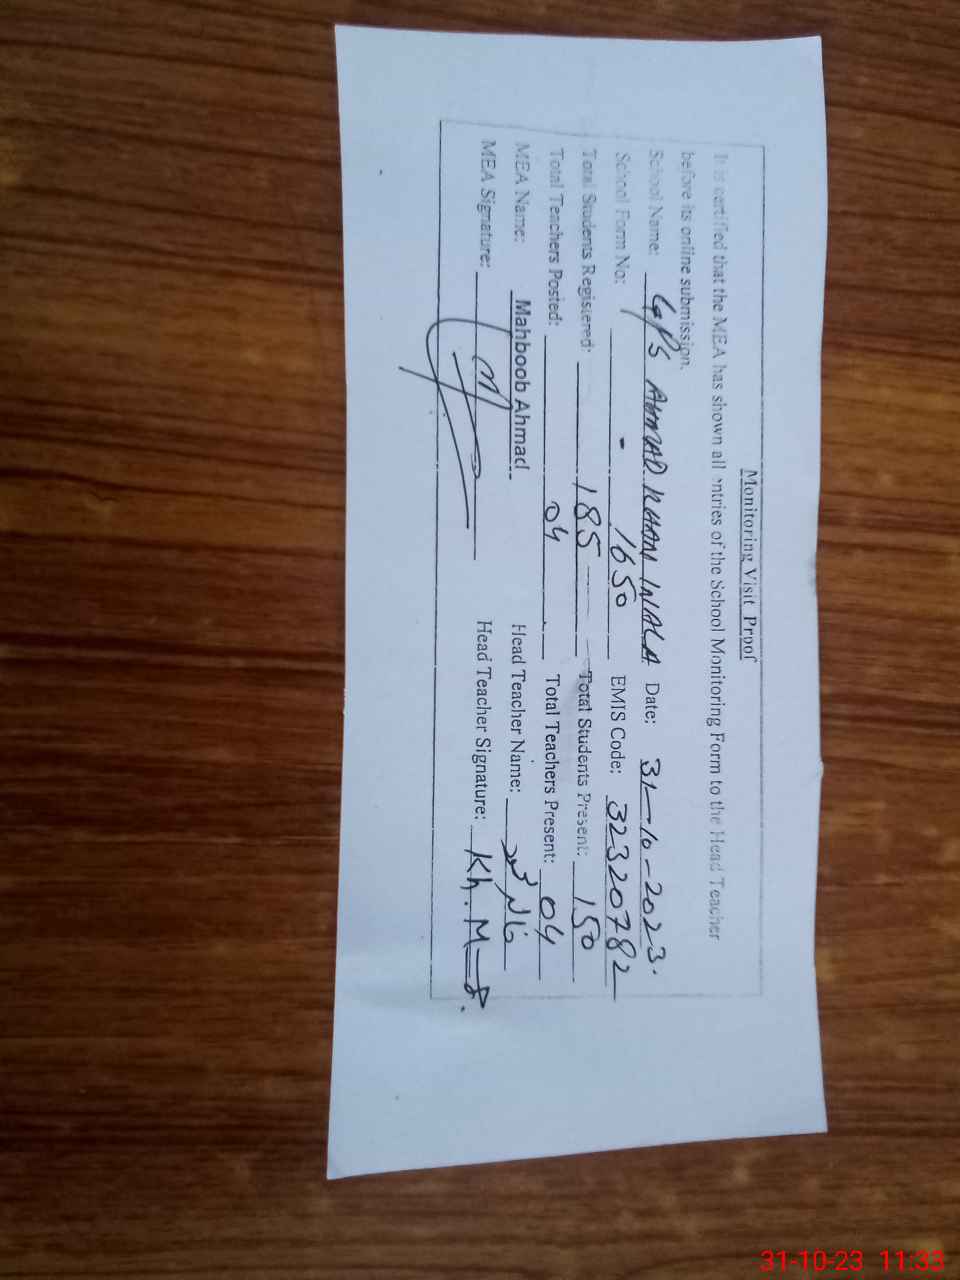 Monitoring Visit Proof
It is certified that the MEA has shown all entries of the School Monitoring Form to the Head Teacher
before its online submission.
School Name: GPS AHMAD KHAN WALA Date: 31-10-2023.
School Form No: - 1650 EMIS Code: 32320782
Total Students Registered: 185 Total Students Present: 150
Total Teachers Posted: 04 Total Teachers Present: 04
MEA Name: Mahboob Ahmad Head Teacher Name:
MEA Signature: Head Teacher Signature: Kh. M
31-10-23 11:33